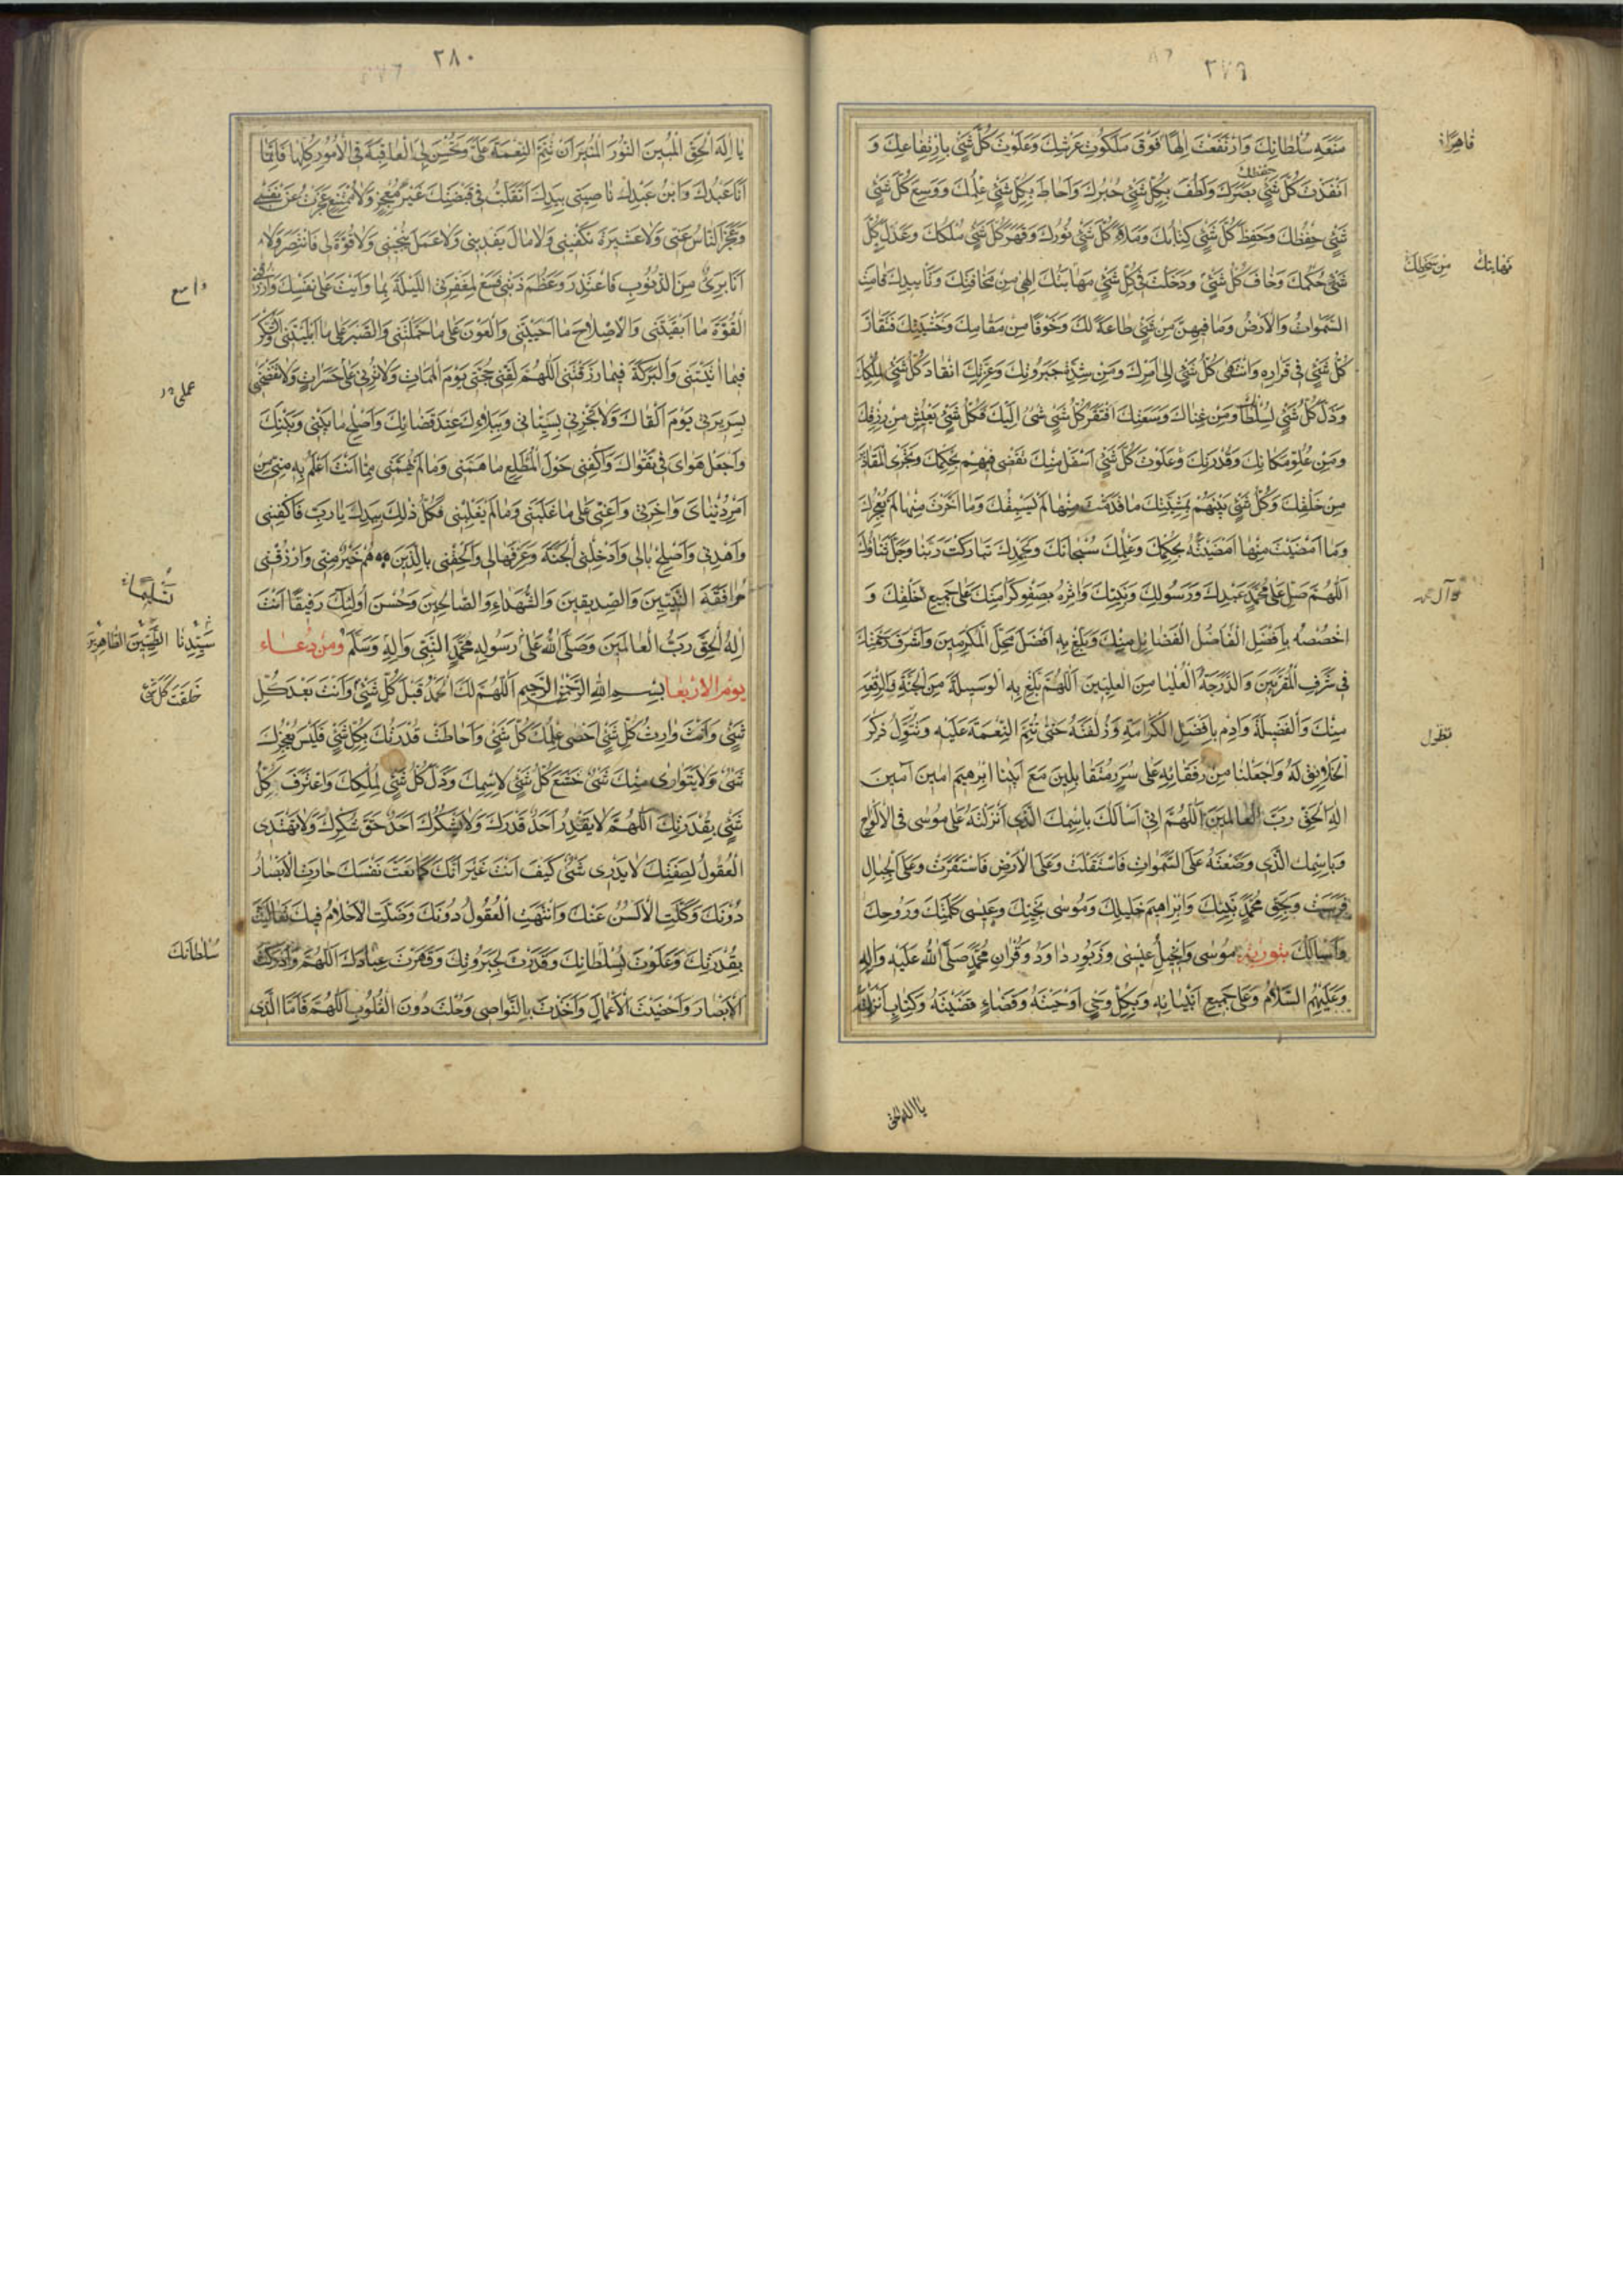 ٢٧٩
مَنَعَةِ سُلْطانِكَ وَارْتَفَعْتَ اِلهًا فَوْقَ مَلَكُوتِ عَرْشِكَ وَعَلَوْتَ كُلَّ شَیْءٍ بِارْتِفاعِكَ وَ
اَنْفَذْتَ كُلَّ شَیْءٍ بَصَرَكَ وَلَطُفَ بِكُلِّ شَیْءٍ خُبْرُكَ وَاَحاطَ بِكُلِّ شَیْءٍ عِلْمُكَ وَوَسِعَ كُلَّ شَیْءٍ
شَیْءٍ حِفْظُكَ وَحَفِظَ كُلَّ شَیْءٍ كِتابُكَ وَمَلَاءَ كُلَّ شَیْءٍ نُورُكَ وَقَهَرَ كُلَّ شَیْءٍ مُلْكُكَ وَعَدَلَ كُلَّ
شَیْءٍ حُكْمُكَ وَخافَ كُلُّ شَیْءٍ وَدَخَلَتْ فی كُلِّ شَیْءٍ مَهابَتُكَ اِلهی مِنْ مَخافَتِكَ وَتَاْییدِكَ قامَتِ
السَّمواتُ وَالْاَرْضُ وَما فیهِنَّ مِنْ شَیْءٍ طاعَةً لَكَ وَخَوْفًا مِنْ مَقامِكَ وَخَشْیَتِكَ فَتَقارَّ
كُلُّ شَیْءٍ فی قَرارِهِ وَانْتَهی كُلُّ شَیْءٍ اِلی اَمْرِكَ وَمِنْ شِدَّةِ جَبَرُوتِكَ وَعِزَّتِكَ انْقادَ كُلُّ شَیْءٍ لِمُلْكِكَ
وَذَلَّ كُلُّ شَیْءٍ لِسُلْطانِكَ وَمِنْ غِناكَ وَسَعَتِكَ افْتَقَرَ كُلُّ شَیْءٍ اِلَیْكَ فَكُلُّ شَیْءٍ یَعیشُ مِنْ رِزْقِكَ
وَمِنْ عُلُوِّ مَكانِكَ وَقُدْرَتِكَ وَعَلَوْتَ كُلَّ شَیْءٍ اَسْفَلَ مِنْكَ تَقْضی فیهِمْ بِحُكْمِكَ وَتَجْرِی الْمَقادیرُ
مِنْ خَلْقِكَ وَكُلُّ شَیْءٍ بَیْنَهُمْ بِمَشِیَّتِكَ ما قَدَّمْتَ مِنْها لَمْ یَسْبِقْكَ وَما اَخَّرْتَ مِنْها لَمْ یُعْجِزْكَ
وَما اَمْضَیْتَ مِنْها اَمْضَیْتَهُ بِحُكْمِكَ وَعِلْمِكَ سُبْحانَكَ وَبِحَمْدِكَ تَبارَكْتَ رَبَّنا وَجَلَّ ثَناؤُكَ
اَللّهُمَّ صَلِّ عَلی مُحَمَّدٍ عَبْدِكَ وَرَسُولِكَ وَنَبِیِّكَ وَاثِرْهُ بِصَفْوِ كَرامَتِكَ عَلی جَمیعِ خَلْقِكَ وَ
اخْصُصْهُ بِاَفْضَلِ الْفَضائِلِ مِنْكَ وَبَلِّغْ بِهِ اَفْضَلَ مَحَلِّ الْمُكَرَّمینَ وَاَشْرَفَ رَحْمَتِكَ
فی شَرَفِ الْمُقَرَّبینَ وَالدَّرَجَةِ الْعُلْیا مِنَ الْعِلِّیّینَ اَللّهُمَّ بَلِّغْ بِهِ الْوَسیلَةَ مِنَ الْجَنَّةِ وَالرِّفْعَةَ
مِنْكَ وَالْفَضیلَةَ وَاَدِمْ بِاَفْضَلِ الْكَرامَةِ وَزُلْفَتَهُ حَتّی تُتِمَّ النِّعْمَةَ عَلَیْهِ وَیَطُولَ ذِكْرُ
الْخَلایِقِ لَهُ وَاجْعَلْنا مِنْ رُفَقائِهِ عَلی سُرُرٍ مُتَقابِلینَ مَعَ اَبینا اِبْرهیمَ امینَ آمینَ
اِلهَ الْحَقِّ رَبَّ الْعالَمینَ اَللّهُمَّ اِنّی اَسْاَلُكَ بِاسْمِكَ الَّذی اَنْزَلْتَهُ عَلی مُوسی فِی الْاَلْواحِ
وَبِاسْمِكَ الَّذی وَضَعْتَهُ عَلَی السَّمواتِ فَاسْتَقَلَّتْ وَعَلَی الْاَرْضِ فَاسْتَقَرَّتْ وَعَلَی الْجِبالِ
فَرَسَتْ وَبِحَقِّ مُحَمَّدٍ نَبِیِّكَ وَاِبْراهیمَ خَلیلِكَ وَمُوسی نَجِیِّكَ وَعیسی كَلِمَتِكَ وَرُوحِكَ
وَاَسْاَلُكَ بِتَوْریةِ مُوسی وَاِنْجیلِ عیسی وَزَبُورِ داوُدَ وَقُرْانِ مُحَمَّدٍ صَلَّی اللهُ عَلَیْهِ وَالِهِ
وَعَلَیْهِمُ السَّلامُ وَعَلی جَمیعِ اَنْبِیائِهِ وَبِكُلِّ وَحْیٍ اَوْحَیْتَهُ وَقَضاءٍ قَضَیْتَهُ وَكِتابٍ اَنْزَلْتَهُ
قاهِرًا
مِنْ سَخَطِكَ
وآل محمد
تطول
یا اله الحق
٢٨٠
یا اِلهَ الْحَقِّ الْمُبینَ النُّورَ الْمُنیرَ اَنْ تُتِمَّ النِّعْمَةَ عَلَیَّ وَتُحْسِنَ لِیَ الْعاقِبَةَ فِی الْاُمُورِ كُلِّها فَاِنَّما
اَنَا عَبْدُكَ وَابْنُ عَبْدِكَ ناصِیَتی بِیَدِكَ اَتَقَلَّبُ فی قَبْضَتِكَ غَیْرَ مُعْجِزٍ وَلا مُمْتَنِعٍ عَجَزْتُ عَنْ نَفْسی
وَعَجَزَ النّاسُ عَنّی وَلا عَشیرَةَ تَكْفینی وَلا مالَ یَفْدینی وَلا عَمَلَ یُنْجینی وَلا قُوَّةَ لی فَاَنْتَصِرَ وَلا
اَنَا بَریءٌ مِنَ الذُّنُوبِ فَاَعْتَذِرَ وَعَظُمَ ذَنْبی فَسَعْ لِمَغْفِرَتی اللَّیْلَةَ بِما وَاَیْتَ عَلی نَفْسِكَ وَارْزُقْنِی
الْقُوَّةَ ما اَبْقَیْتَنی وَالْاِصْلاحَ ما اَحْیَیْتَنی وَالْعَوْنَ عَلی ما حَمَّلْتَنی وَالصَّبْرَ عَلی ما اَبْلَیْتَنی وَالشُّكْرَ
فیما اتَیْتَنی وَالْبَرَكَةَ فیما رَزَقْتَنی اَللّهُمَّ لَقِّنی حُجَّتی یَوْمَ الْمَماتِ وَلا تُرِنی عَلَیَّ حَسَراتٍ وَلا تَفْضَحْنی
بِسَریرَتی یَوْمَ اَلْقاكَ وَلا تُخْزِنی بِسَیِّئاتی وَبِبَلائِكَ عِنْدَ قَضائِكَ وَاَصْلِحْ ما بَیْنی وَبَیْنَكَ
وَاجْعَلْ هَوایَ فی تَقْواكَ وَاكْفِنی هَوْلَ الْمُطَّلَعِ ما هَمَّنی وَما لَمْ یُهِمَّنی مِمّا اَنْتَ اَعْلَمُ بِهِ مِنّی مِنْ
اَمْرِ دُنْیایَ وَاخِرَتی وَاَعِنّی عَلی ما غَلَبَنی وَما لَمْ یَغْلِبْنی فَكُلُّ ذلِكَ بِیَدِكَ یا رَبِّ فَاكْفِنی
وَاهْدِنی وَاَصْلِحْ بالی وَاَدْخِلْنِی الْجَنَّةَ وَعَرِّفْها لی وَاَلْحِقْنی بِالَّذینَ هُمْ خَیْرٌ مِنّی وَارْزُقْنی
مُرافَقَةَ النَّبِیّینَ وَالصِّدّیقینَ وَالشُّهَداءِ وَالصّالِحینَ وَحَسُنَ اُولئِكَ رَفیقًا اَنْتَ
اِلهُ الْحَقِّ رَبُّ الْعالَمینَ وَصَلَّی اللهُ عَلی رَسُولِهِ مُحَمَّدٍ النَّبِیِّ وَالِهِ وَسَلَّمَ وَمِنْ دُعاء
یَوْمِ الْاَرْبَعا بِسْمِ اللهِ الرَّحْمنِ الرَّحیمِ اَللّهُمَّ لَكَ الْحَمْدُ قَبْلَ كُلِّ شَیْءٍ وَاَنْتَ بَعْدَ كُلِّ
شَیْءٍ وَاَنْتَ وارِثُ كُلِّ شَیْءٍ اَحْصی عِلْمُكَ كُلَّ شَیْءٍ وَاَحاطَتْ قُدْرَتُكَ بِكُلِّ شَیْءٍ فَلَیْسَ یُعْجِزُكَ
شَیْءٌ وَلا یَتَواری مِنْكَ شَیْءٌ خَشَعَ كُلُّ شَیْءٍ لِاِسْمِكَ وَذَلَّ كُلُّ شَیْءٍ لِمُلْكِكَ وَاعْتَرَفَ كُلُّ
شَیْءٍ بِقُدْرَتِكَ اَللّهُمَّ لا یَقْدِرُ اَحَدٌ قَدْرَكَ وَلا یَشْكُرُكَ اَحَدٌ حَقَّ شُكْرِكَ وَلا تَهْتَدِی
الْعُقُولُ لِصِفَتِكَ لا یَدْری شَیْءٌ كَیْفَ اَنْتَ غَیْرَ اَنَّكَ كَما نَعَتَّ نَفْسَكَ حارَتِ الْاَبْصارُ
دُونَكَ وَكَلَّتِ الْاَلْسُنُ عَنْكَ وَانْتَهَتِ الْعُقُولُ دُونَكَ وَضَلَّتِ الْاَحْلامُ فیكَ تَعالَیْتَ
بِقُدْرَتِكَ وَعَلَوْتَ بِسُلْطانِكَ وَقَدَرْتَ بِجَبَرُوتِكَ وَقَهَرْتَ عِبادَكَ اَللّهُمَّ وَاَدْرَكْتَ
الْاَبْصارَ وَاَحْصَیْتَ الْاَعْمالَ وَاَخَذْتَ بِالنَّواصی وَحُلْتَ دُونَ الْقُلُوبِ اَللّهُمَّ فَاَمَّا الَّذی
سَیِّدِنا الطَّیِّبینَ الطّاهِرینَ
خَلَقْتَ كُلَّ شَیْء
سُلْطانَكَ